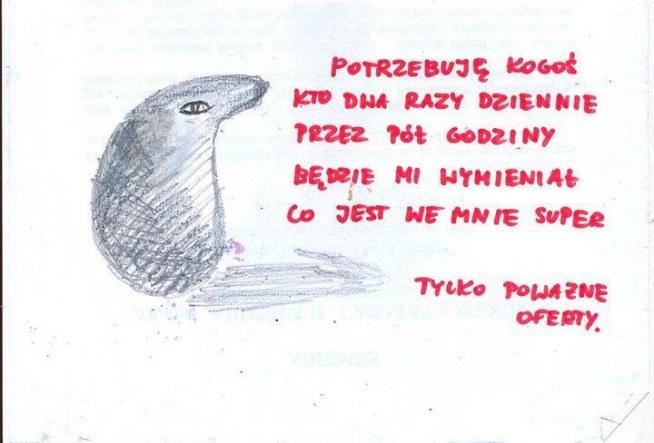 POTRZEBUJĘ KOGOŚ
KTO DWA RAZY DZIENNIE
PRZEZ PÓŁ GODZINY
BĘDZIE MI WYMIENIAŁ
CO JEST WE MNIE SUPER
TYLKO POWAŻNE
OFERTY.